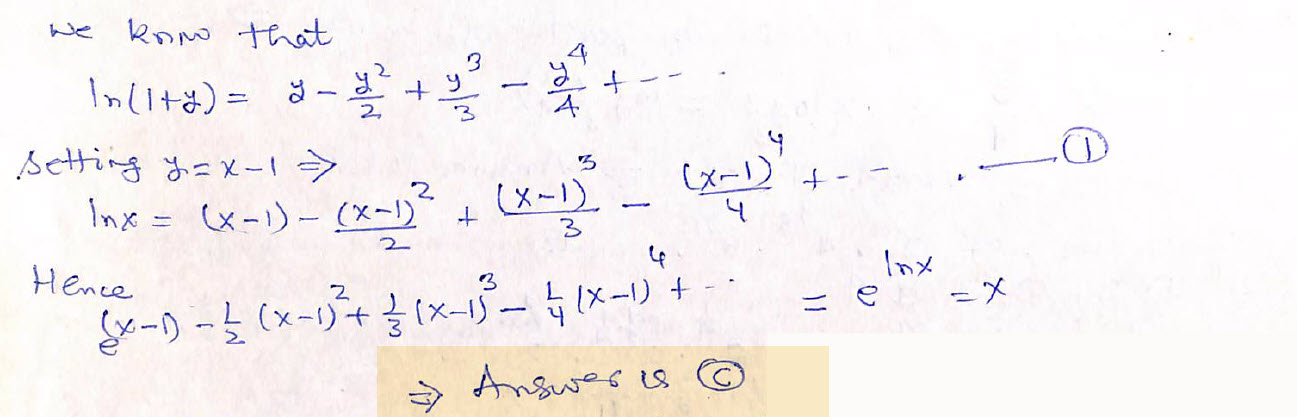 We know that
ln(1+y) = y - y²/2 + y³/3 - y⁴/4 + -- .
Setting y = x-1 ⇒
ln x = (x-1) - (x-1)²/2 + (x-1)³/3 - (x-1)⁴/4 + - - . — ①
Hence
e^{(x-1) - 1/2 (x-1)² + 1/3 (x-1)³ - 1/4 (x-1)⁴ + - -} = e^{ln x} = x
⇒ Answer is Ⓒ